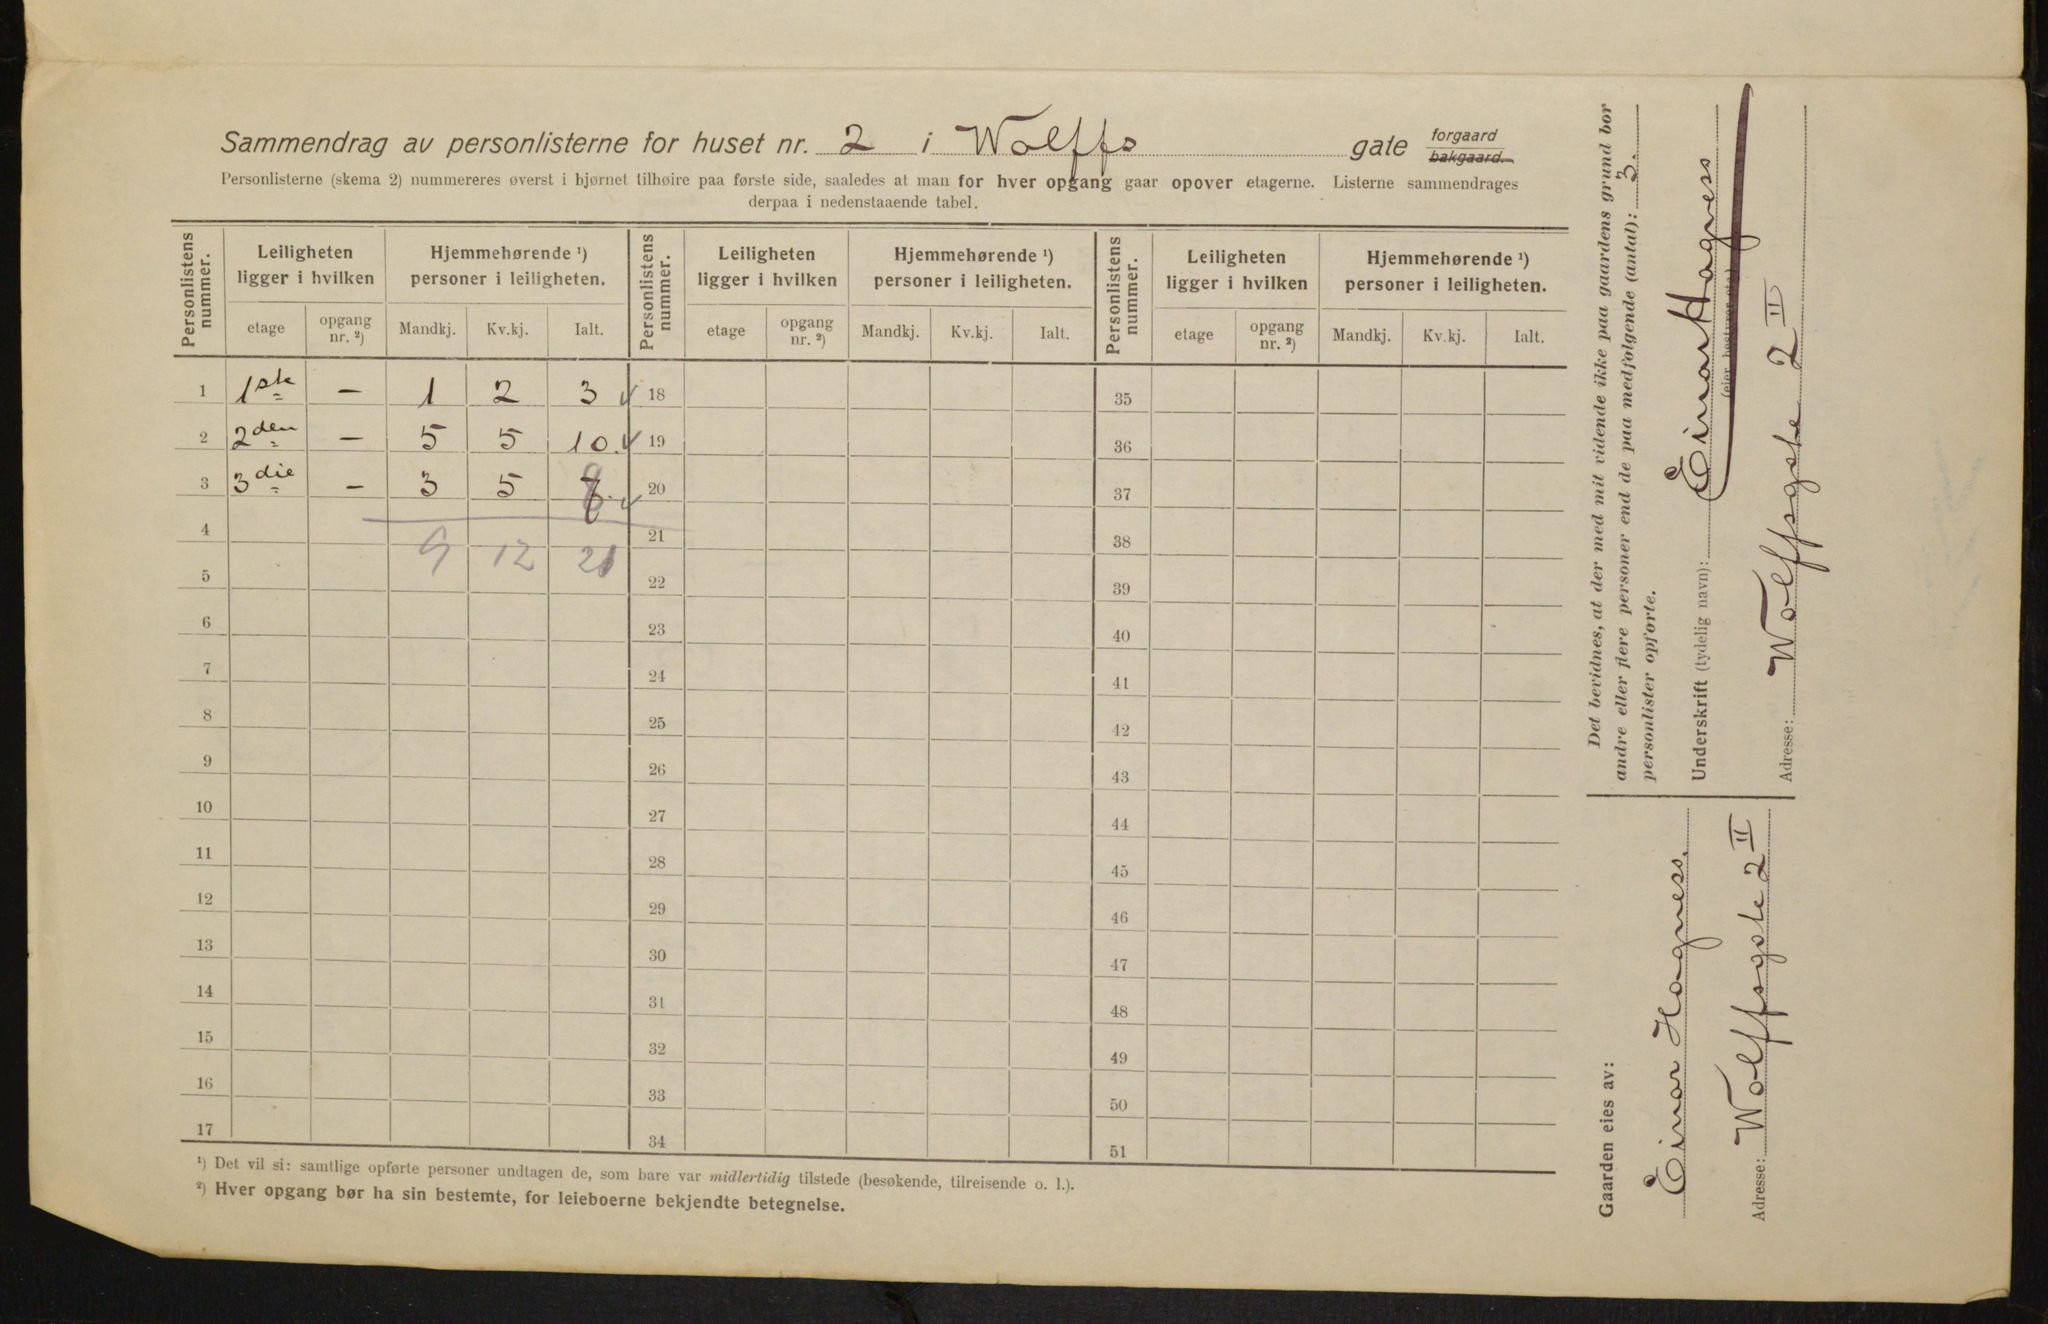 Sammendrag av personlisterne for huset nr. 2 i Wolffs gate forgaard bakgaard.
Personlisterne (skema 2) nummereres øverst i hjørnet tilhøire paa første side, saaledes at man for hver opgang gaar opover etagerne. Listerne sammendrages
derpaa i nedenstaaende tabel.
Personlistens nummer. Leiligheten ligger i hvilken Hjemmehørende ¹) personer i leiligheten. Personlistens nummer. Leiligheten ligger i hvilken Hjemmehørende ¹) personer i leiligheten. Personlistens nummer. Leiligheten ligger i hvilken Hjemmehørende ¹) personer i leiligheten.
etage opgang nr. ²) Mandkj. Kv.kj. Ialt. etage opgang nr. ²) Mandkj. Kv.kj. Ialt. etage opgang nr. ²) Mandkj. Kv.kj. Ialt.
1 1ste - 1 2 3 18 35
2 2den - 5 5 10. 19 36
3 3die - 3 5 8 20 37
4 9 12 21 21 38
5 22 39
6 23 40
7 24 41
8 25 42
9 26 43
10 27 44
11 28 45
12 29 46
13 30 47
14 31 48
15 32 49
16 33 50
17 34 51
¹) Det vil si: samtlige opførte personer undtagen de, som bare var midlertidig tilstede (besøkende, tilreisende o. l.).
²) Hver opgang bør ha sin bestemte, for leieboerne bekjendte betegnelse.
Det bevidnes, at der med mit vidende ikke paa gaardens grund bor
andre eller flere personer end de paa medfølgende (antal): 3.
personlister opførte.
Underskrift (tydelig navn): Einar Hagness
(eier, bestyrer etc.)
Adresse: Wolffsgate 2 II
Gaarden eies av:
Einar Hagness.
Adresse: Wolffsgate 2 II